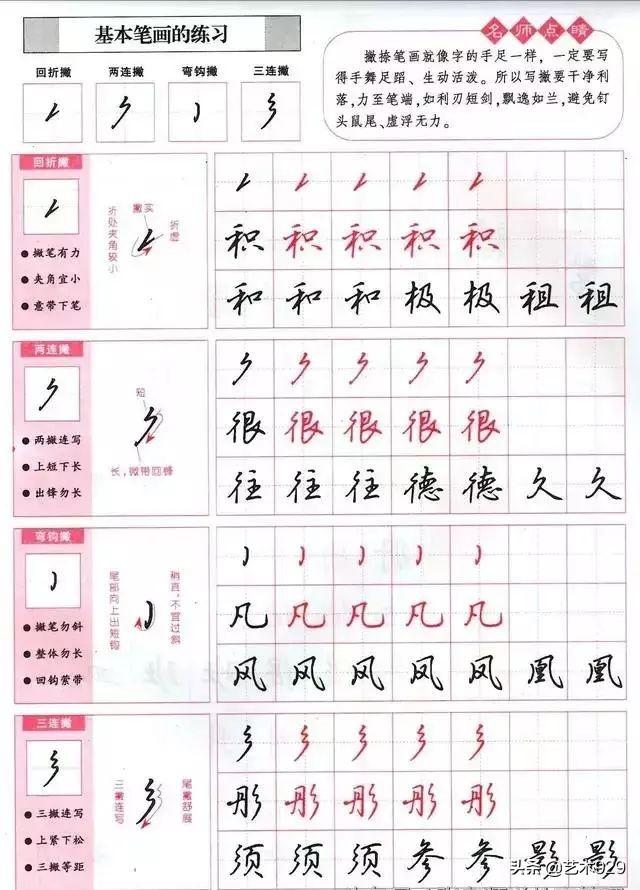 基本笔画的练习
名师点睛
回折撇 两连撇 弯钩撇 三连撇
撇捺笔画就像字的手足一样，一定要写
得手舞足蹈、生动活泼。所以写撇要干净利
落，力至笔端，如利刃短剑，飘逸如兰，避免钉
头鼠尾、虚浮无力。
回折撇
撇笔有力
夹角宜小
意带下笔
折处夹角较小
撇实
折虚
积 积 积 积 积
和 和 和 极 极 租 租
两连撇
两撇连写
上短下长
出锋勿长
短
长，微带回锋
很 很 很 很 很
往 往 往 德 德 久 久
弯钩撇
撇笔勿斜
整体勿长
回钩萦带
尾部向上出短钩
稍直，不宜过斜
凡 凡 凡 凡 凡
风 风 风 风 风 凰 凰
三连撇
三撇连写
上紧下松
三撇等距
三撇连写
尾撇舒展
彤 彤 彤 彤 彤
须 须 须 参 参 影 影
头条@艺术929